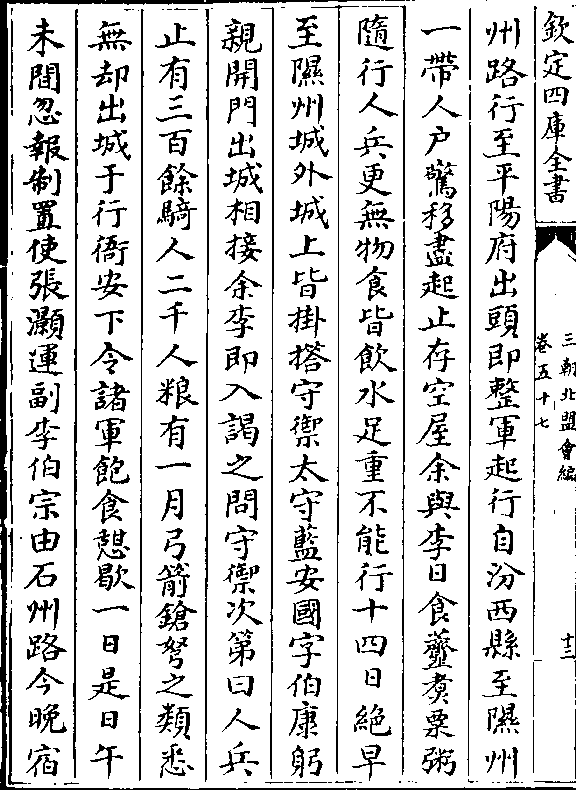 欽定四庫全書
三朝北盟會編
卷五十七
十二
州路行至平陽府出頭即整軍起行自汾西縣至隰州
一帶人户驚移盡起止存空屋余與李日食虀煑粟粥
隨行人兵更無物食皆飲水足重不能行十四日絶早
至隰州城外城上皆掛搭守禦太守藍安國字伯康躬
親開門出城相接余李即入謁之問守禦次第曰人兵
止有三百餘騎人二千人粮有一月弓箭鎗弩之類悉
無却出城于行衙安下令諸軍飽食憇歇一日是日午
未間忽報制置使張灝運副李伯宗由石州路今晚宿